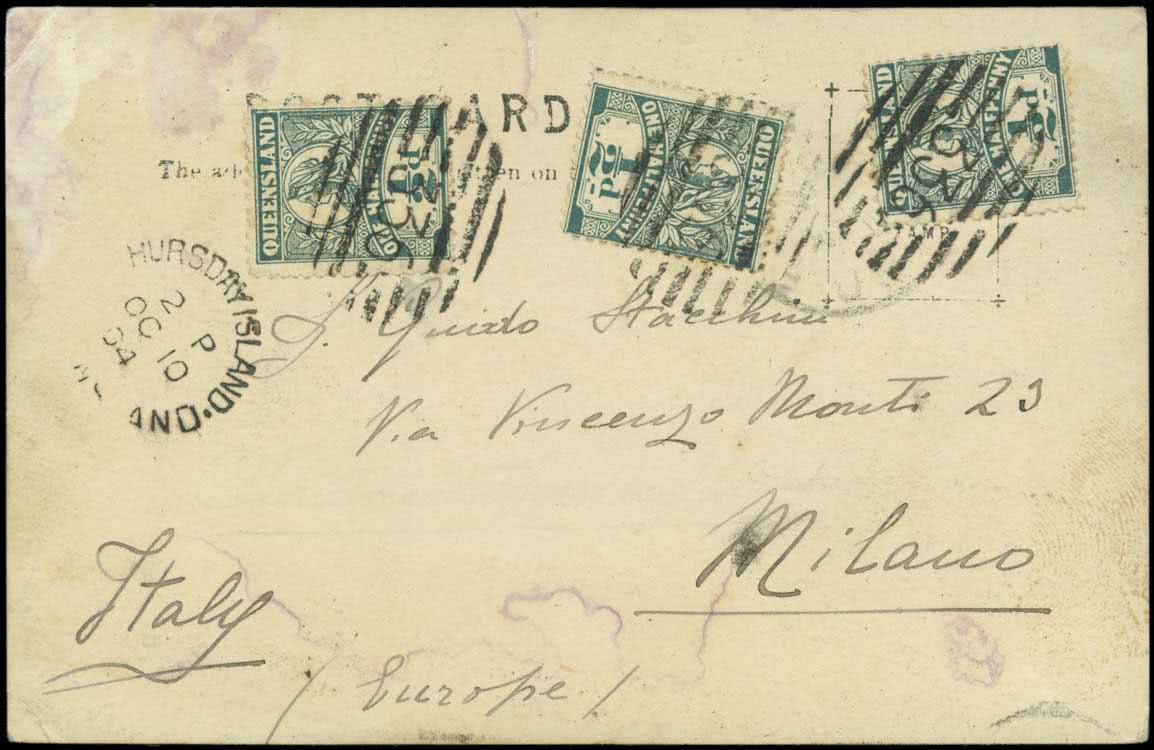 POST CARD
The ad
en on
QUEENSLAND
ONE HALFPENNY
½ Pd
QUEENSLAND
ONE HALFPENNY
½ Pd
QUEENSLAND
ONE HALFPENNY
½ Pd
336
336
STAMP
HURSDAY ISLAND
2 P
OC 10
04
AND
Guido Stacchini
Via Vincenzo Monti 23
Milano
Italy
(Europe)